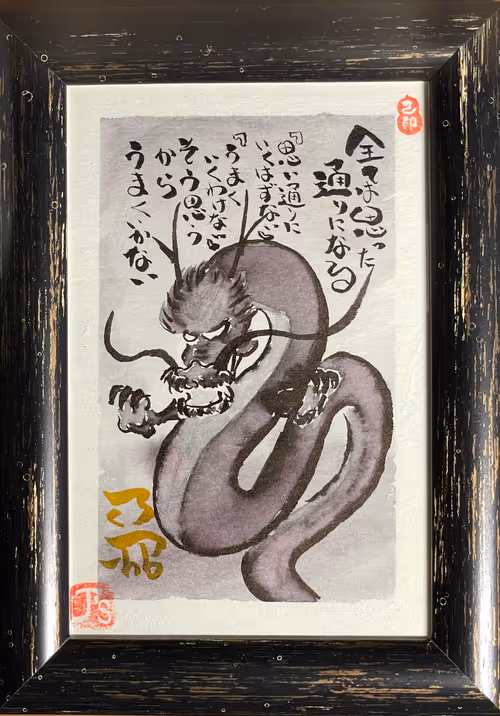 全ては思った
通りになる
『思い通りに
いくはずない』
『うまく
いくわけない』
そう思う
から
うまくいかない